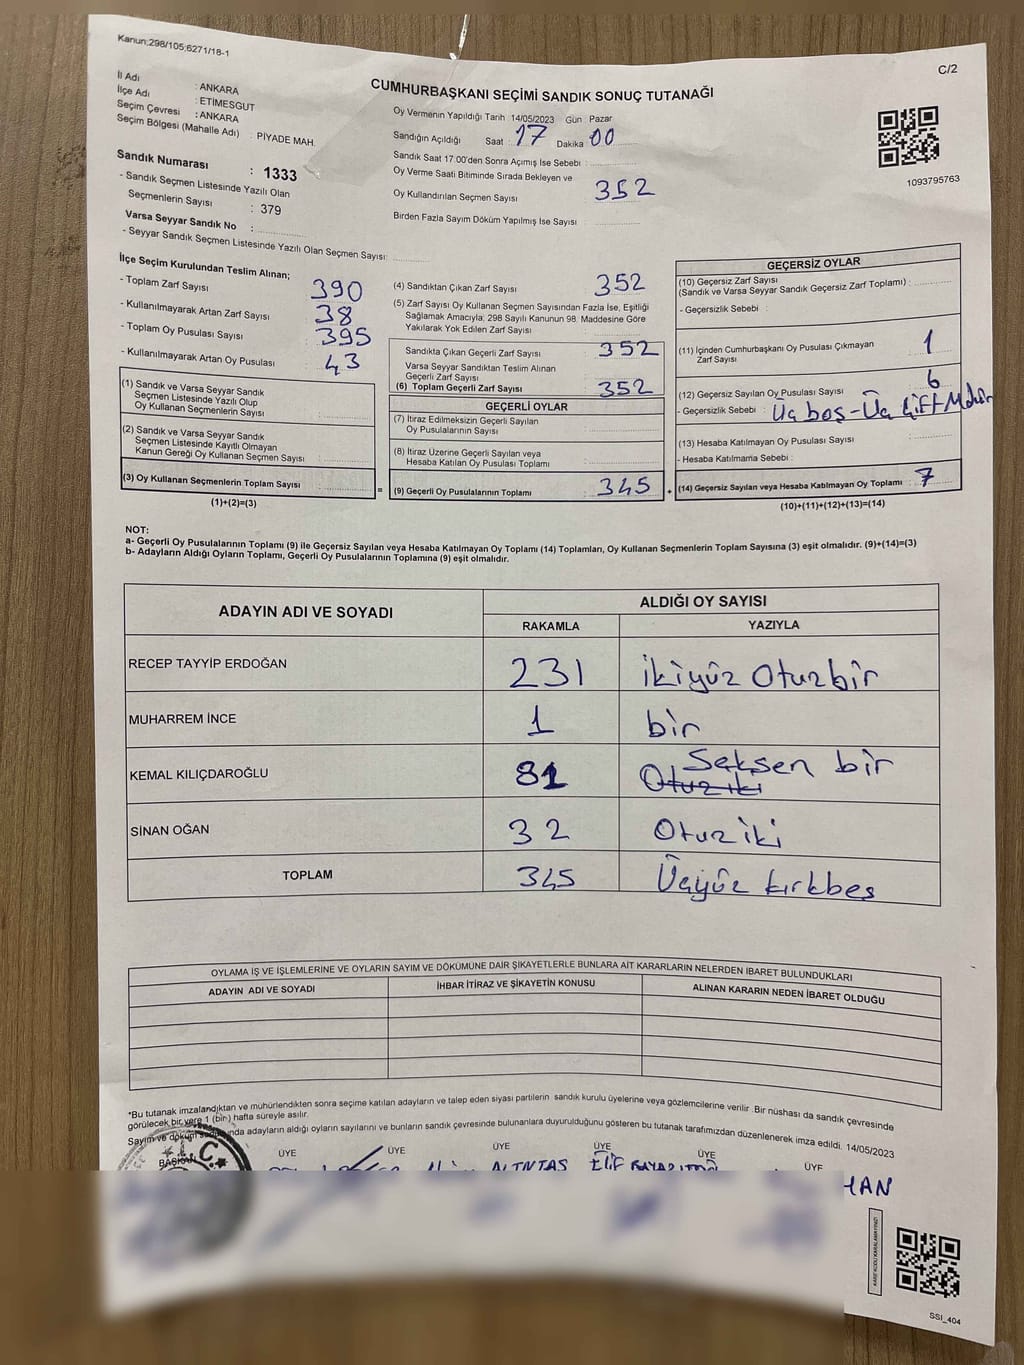 Kanun;298/105;6271/18-1
C/2
CUMHURBAŞKANI SEÇİMİ SANDIK SONUÇ TUTANAĞI
İl Adı : ANKARA
İlçe Adı : ETİMESGUT
Seçim Çevresi : ANKARA
Seçim Bölgesi (Mahalle Adı) : PİYADE MAH.
Sandık Numarası : 1333
- Sandık Seçmen Listesinde Yazılı Olan
Seçmenlerin Sayısı : 379
Varsa Seyyar Sandık No :
- Seyyar Sandık Seçmen Listesinde Yazılı Olan Seçmen Sayısı:
Oy Vermenin Yapıldığı Tarih 14/05/2023 Gün Pazar
Sandığın Açıldığı Saat : 17 Dakika 00
Sandık Saat 17:00'den Sonra Açımış İse Sebebi :
Oy Verme Saati Bitiminde Sırada Bekleyen ve
Oy Kullandırılan Seçmen Sayısı 352
Birden Fazla Sayım Döküm Yapılmış İse Sayısı :
1093795763
İlçe Seçim Kurulundan Teslim Alınan;
- Toplam Zarf Sayısı 390
- Kullanılmayarak Artan Zarf Sayısı 38
- Toplam Oy Pusulası Sayısı 395
- Kullanılmayarak Artan Oy Pusulası 43
(1) Sandık ve Varsa Seyyar Sandık
Seçmen Listesinde Yazılı Olup
Oy Kullanan Seçmenlerin Sayısı :
(2) Sandık ve Varsa Seyyar Sandık
Seçmen Listesinde Kayıtlı Olmayan
Kanun Gereği Oy Kullanan Seçmen Sayısı :
(3) Oy Kullanan Seçmenlerin Toplam Sayısı :
(1)+(2)=(3)
(4) Sandıktan Çıkan Zarf Sayısı : 352
(5) Zarf Sayısı Oy Kullanan Seçmen Sayısından Fazla İse, Eşitliği
Sağlamak Amacıyla; 298 Sayılı Kanunun 98. Maddesine Göre
Yakılarak Yok Edilen Zarf Sayısı :
Sandıkta Çıkan Geçerli Zarf Sayısı : 352
Varsa Seyyar Sandıktan Teslim Alınan
Geçerli Zarf Sayısı :
(6) Toplam Geçerli Zarf Sayısı : 352
GEÇERLİ OYLAR
(7) İtiraz Edilmeksizin Geçerli Sayılan
Oy Pusulalarının Sayısı :
(8) İtiraz Üzerine Geçerli Sayılan veya
Hesaba Katılan Oy Pusulası Toplamı :
(9) Geçerli Oy Pusulalarının Toplamı : 345
=
+
GEÇERSİZ OYLAR
(10) Geçersiz Zarf Sayısı
(Sandık ve Varsa Seyyar Sandık Geçersiz Zarf Toplamı) :
- Geçersizlik Sebebi :
(11) İçinden Cumhurbaşkanı Oy Pusulası Çıkmayan
Zarf Sayısı : 1
(12) Geçersiz Sayılan Oy Pusulası Sayısı : 6
- Geçersizlik Sebebi : Üç boş-Üç Çift Mühür
(13) Hesaba Katılmayan Oy Pusulası Sayısı :
- Hesaba Katılmama Sebebi :
(14) Geçersiz Sayılan veya Hesaba Katılmayan Oy Toplamı : 7
(10)+(11)+(12)+(13)=(14)
NOT:
a- Geçerli Oy Pusulalarının Toplamı (9) ile Geçersiz Sayılan veya Hesaba Katılmayan Oy Toplamı (14) Toplamları, Oy Kullanan Seçmenlerin Toplam Sayısına (3) eşit olmalıdır. (9)+(14)=(3)
b- Adayların Aldığı Oyların Toplamı, Geçerli Oy Pusulalarının Toplamına (9) eşit olmalıdır.
ADAYIN ADI VE SOYADI
ALDIĞI OY SAYISI
RAKAMLA YAZIYLA
RECEP TAYYİP ERDOĞAN 231 ikiyüz Otuzbir
MUHARREM İNCE 1 bir
KEMAL KILIÇDAROĞLU 81 Otuziki Seksen bir
SİNAN OĞAN 32 Otuziki
TOPLAM 345 Üçyüz kırkbeş
OYLAMA İŞ VE İŞLEMLERİNE VE OYLARIN SAYIM VE DÖKÜMÜNE DAİR ŞİKAYETLERLE BUNLARA AİT KARARLARIN NELERDEN İBARET BULUNDUKLARI
ADAYIN ADI VE SOYADI İHBAR İTİRAZ VE ŞİKAYETİN KONUSU ALINAN KARARIN NEDEN İBARET OLDUĞU
*Bu tutanak imzalandıktan ve mühürlendikten sonra seçime katılan adayların ve talep eden siyasi partilerin sandık kurulu üyelerine veya gözlemcilerine verilir. Bir nüshası da sandık çevresinde
görülecek bir yere 1 (bir) hafta süreyle asılır.
Sayım ve döküm adayların aldığı oyların sayılarını ve bunların sandık çevresinde bulunanlara duyurulduğunu gösteren bu tutanak tarafımızdan düzenlenerek imza edildi. 14/05/2023
BAŞKAN ÜYE ÜYE ÜYE ÜYE ÜYE ÜYE
ALTNTAŞ ELİF
HAN
SSI_404